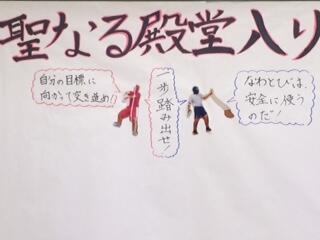 聖なる殿堂入り
自分の目標に
向かって突き進め!!
一歩踏み出せ!
なわとびは、
安全に使う
のだ!